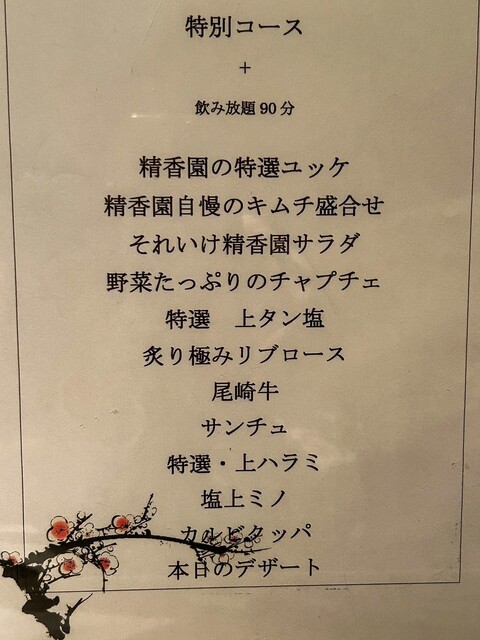 特別コース
+
飲み放題90分
精香園の特選ユッケ
精香園自慢のキムチ盛合せ
それいけ精香園サラダ
野菜たっぷりのチャプチェ
特選　上タン塩
炙り極みリブロース
尾崎牛
サンチュ
特選・上ハラミ
塩上ミノ
カルビクッパ
本日のデザート